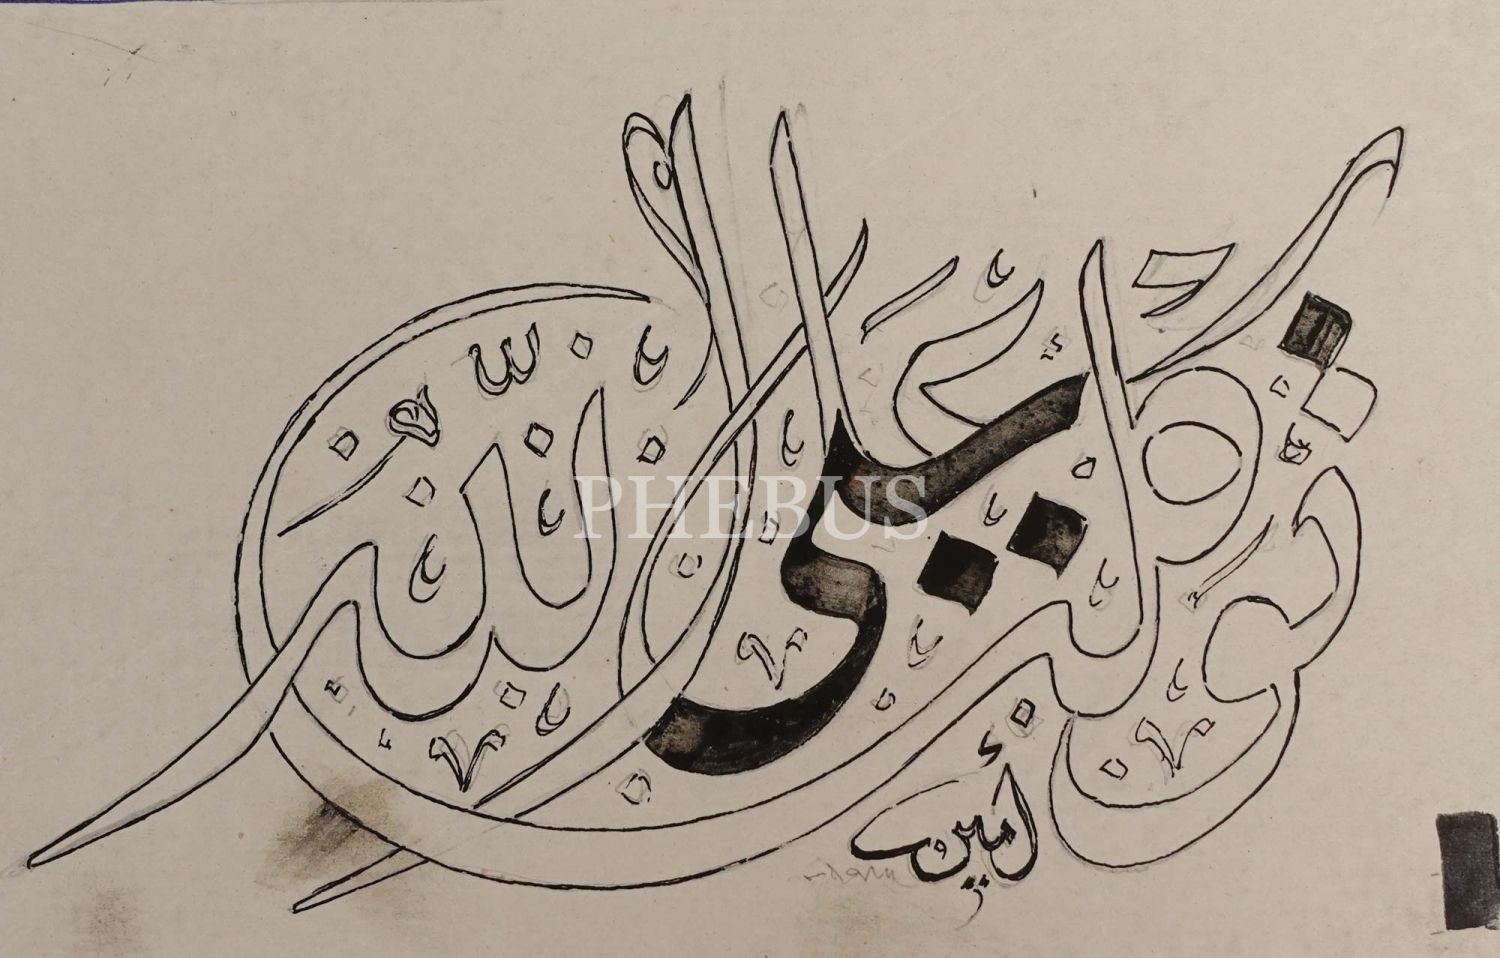 توكلت على الله
أمين
PHEBUS